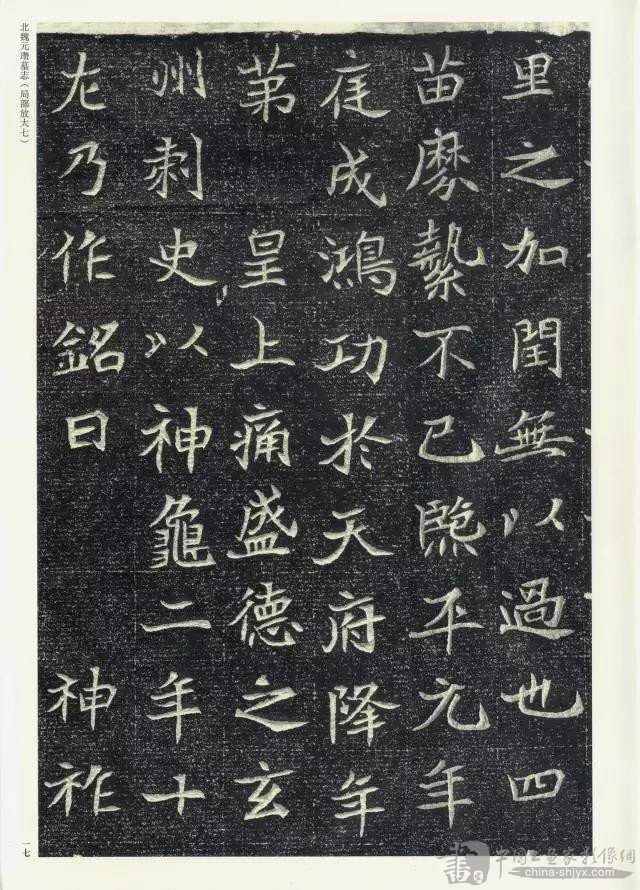 里之加閏無以過也四
苗縶不已熈平元年
庭成鴻功於天府降年
苐　皇上痛盛德之玄
州刺史以神龜二年十
左乃作銘曰　神祚
北魏元瓚墓志（局部放大七）
一七
中國书画家影像網
china-shjyx.com